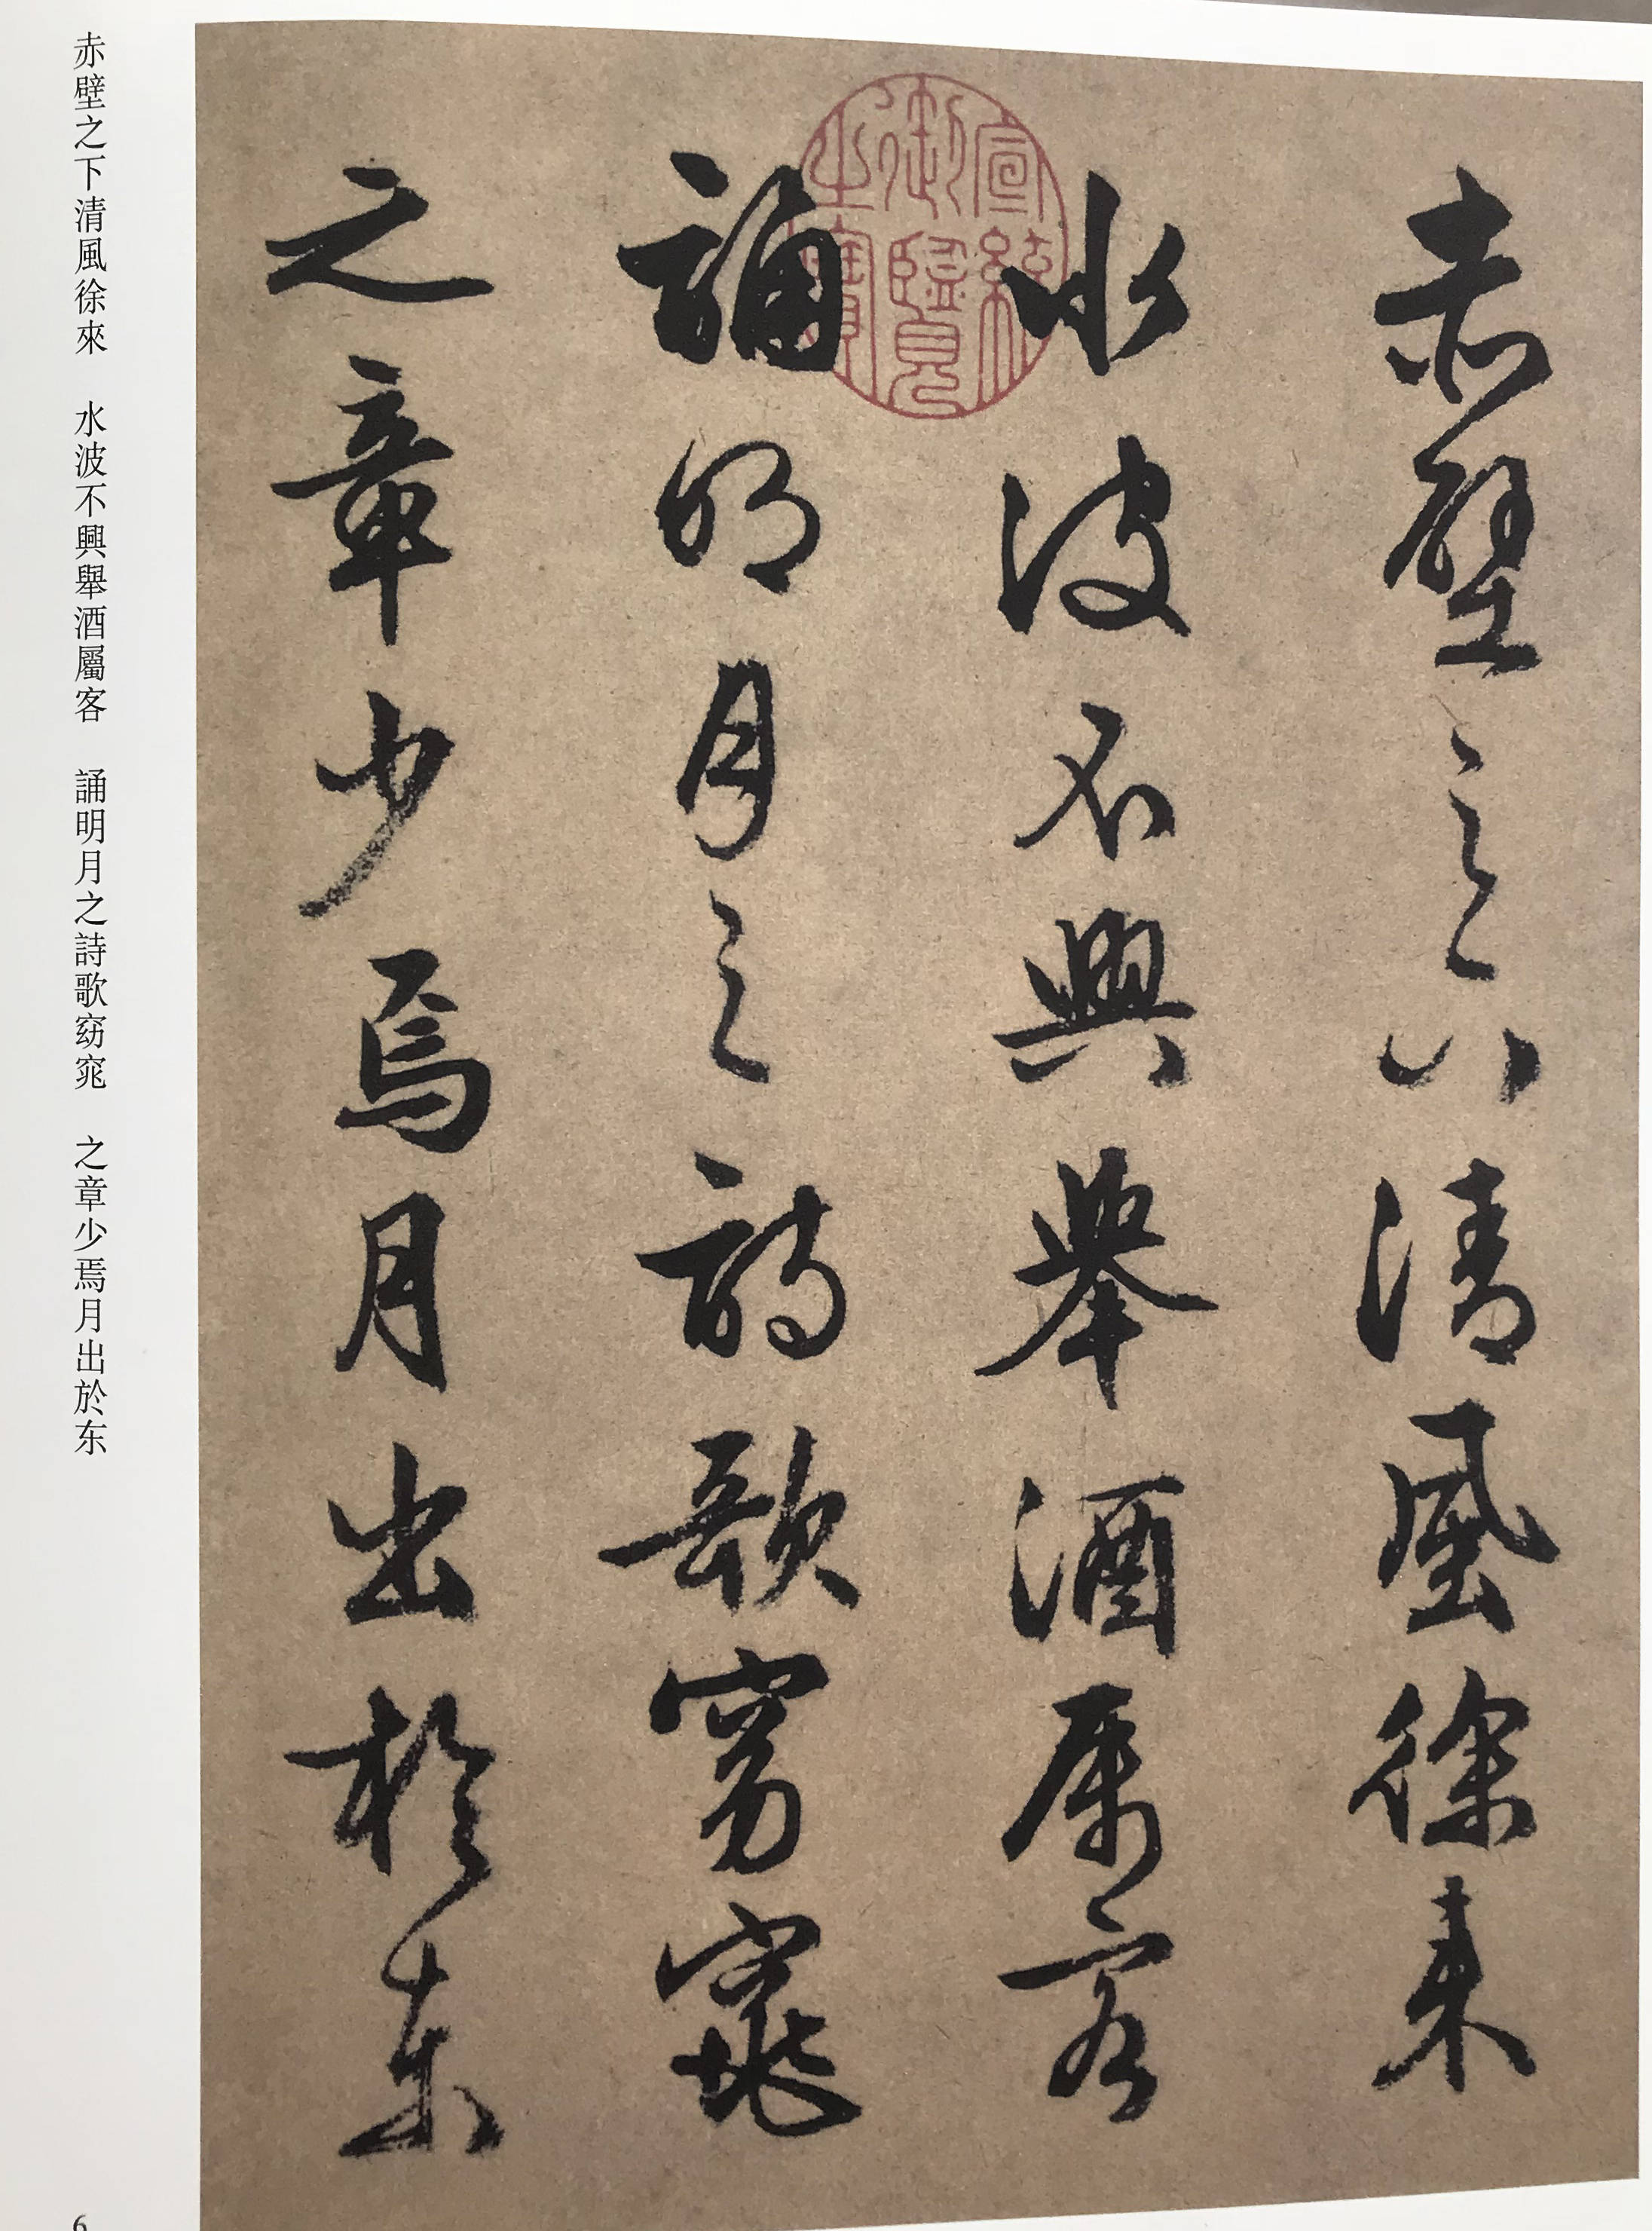 赤壁之下清風徐来
水波不興舉酒属客
誦明月之詩歌窈窕
之章少焉月出於東
宣統
御覽
之寶
赤壁之下清風徐來　水波不興舉酒屬客　誦明月之詩歌窈窕　之章少焉月出於东
6